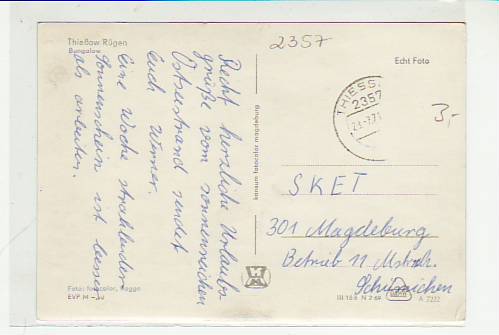 Thießow Rügen
Bungalow
2357
Echt Foto
THIESS
2357
3,-
Recht herzliche Urlaubs
grüße vom sonnenreichen
Ostseestrand sendet
Euch Werner.
Eine Woche strahlenden
Sonnenschein ist besser
als arbeiten.
konsum fotocolor magdeburg
SKET
301 Magdeburg
Betrieb 11
Fotos fotocolor, Hagge
EVP M -,20
III 18 8 N 2 69
A 7222